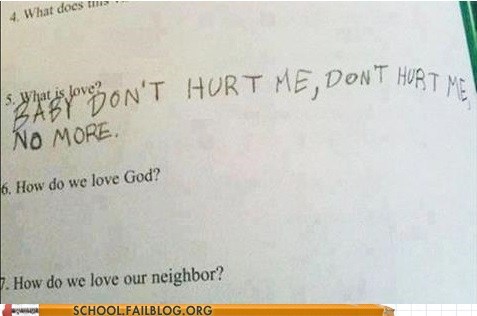 4. What does this
5. What is love?
BABY DON'T HURT ME, DON'T HURT ME,
NO MORE.
6. How do we love God?
7. How do we love our neighbor?
SCHOOL.FAILBLOG.ORG